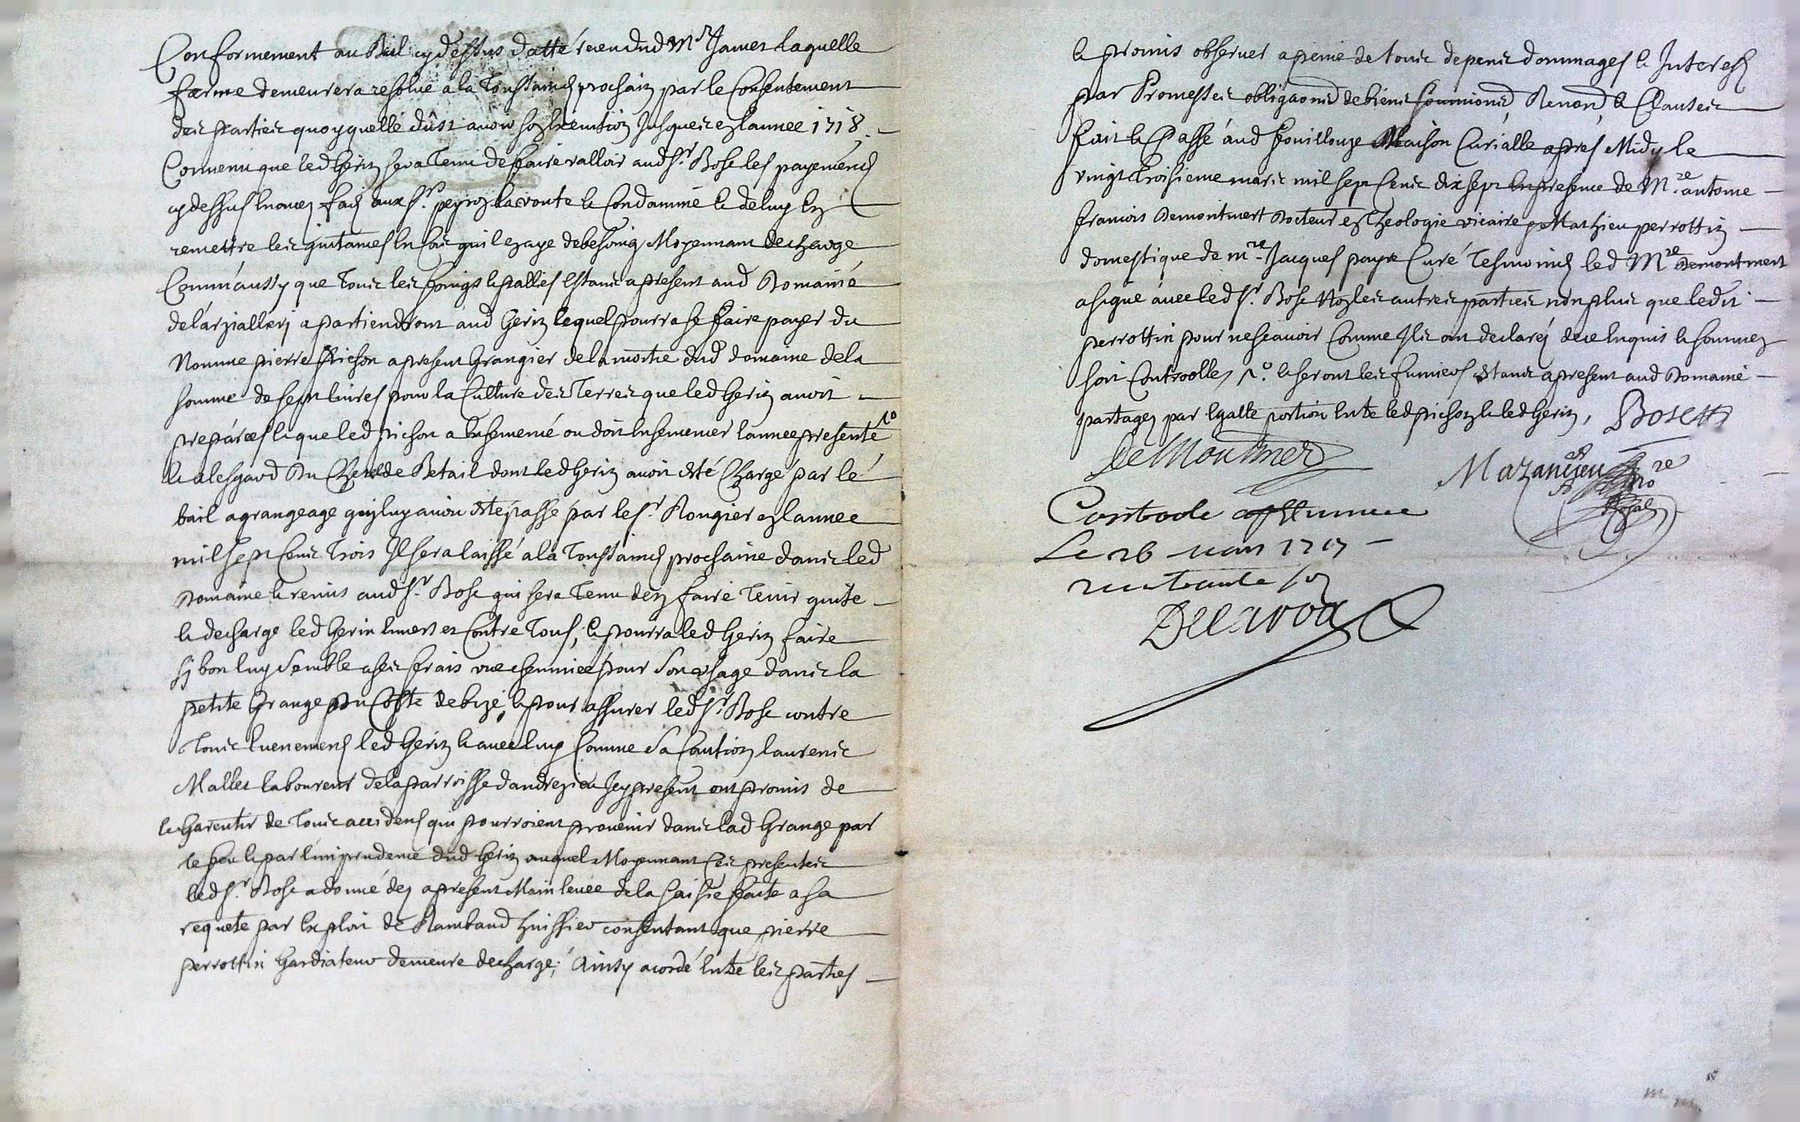 Conformement au Bail cy dessus datté receu dud Mr Jamet laquelle
ferme demeurera resolue a la Toussainctz prochain par le Consentement
des parties quoyquelle dûst avoir son execution jusques en lannee 1718.
Convenu que led Gerin sera Tenu de faire valloir aud Sr. Bose les payements
cy dessus enoncez faits aux Srs. peyron laconte & Condaminé & de luy en
remettre les quitances en cas quil en aye de besoing Moyennant decharge
Comm'aussy que tous les foings & pallies estans a present aud Domainé
de larziallery apartiendront aud Gerin lequel pourra se faire payer du
Nomme pierre pichon a present Grangier de la moitie dud domaine de la
somme de sept livres pour la Culture des Terres que led Gerin avoit
preparées & que led pichon a ensemencé ou doit ensemencer lannee presente
& a lesgard du de Betail dont led Gerin avoit esté Chargé par le
bail a grangeage quy luy avoit este passé par le Sr. Rougier en lannee
mil sept Cens trois Il sera laissé a la Toussainctz prochaine dans led
Domaine & remis aud Sr. Bose qui sera Tenu den faire Tenir quitte
& decharge led Gerin envers et Contre Tous, & pourra led Gerin faire
sy bon luy semble a ses frais une cheminée pour son usage dans la
petite Grange du Costé de bize, & pour assurer led Sr. Bose contre
Tous evenements led Gerin & avec luy Comme sa Caution laurens
Mallet laboureur de la parroisse dandrezieu Icy present ont promis de
le Garentir de Tous accidens qui pourroient provenir dans lad Grange par
le feu & par limprudence dud Gerin auquel Moyennant Ces presentes
led Sr. Bose a donné dez a present Main levée de la saisie faite a sa
requete par exploit de Rambaud huissier consentant que pierre
perrottin Gardiateur demeure dechargé; Ainsy acordé entre les parties
& promis observer a peine de tous depens dommages & Interests
par Promesses obligaons de biens soumions Renons & Clauses
fait & Passé aud fouillouze Maison Curialle apres Midy le
vingt troisieme mars mil sept Cens dix sept en presence de Mre. antoine
francois Demontmert Docteur en Theologie vicaire & Mathieu perrottin
domestique de mre. Jacques payre Curé Tesmoins led Mre Demontmert
a signé avec led Sr. Bose Non les autres parties non plus que ledit
perrottin pour ne scavoir Comme Ils ont declaré de ce enquis & sommez
soit Controollez No. & seront les fumiers estans a present aud Domaine
partagez par egalle portion entre led pichon & led Gerin,
Bose
de Montmer
Mazancieu
Controlé
Le 26 mars 1717
Delaroa